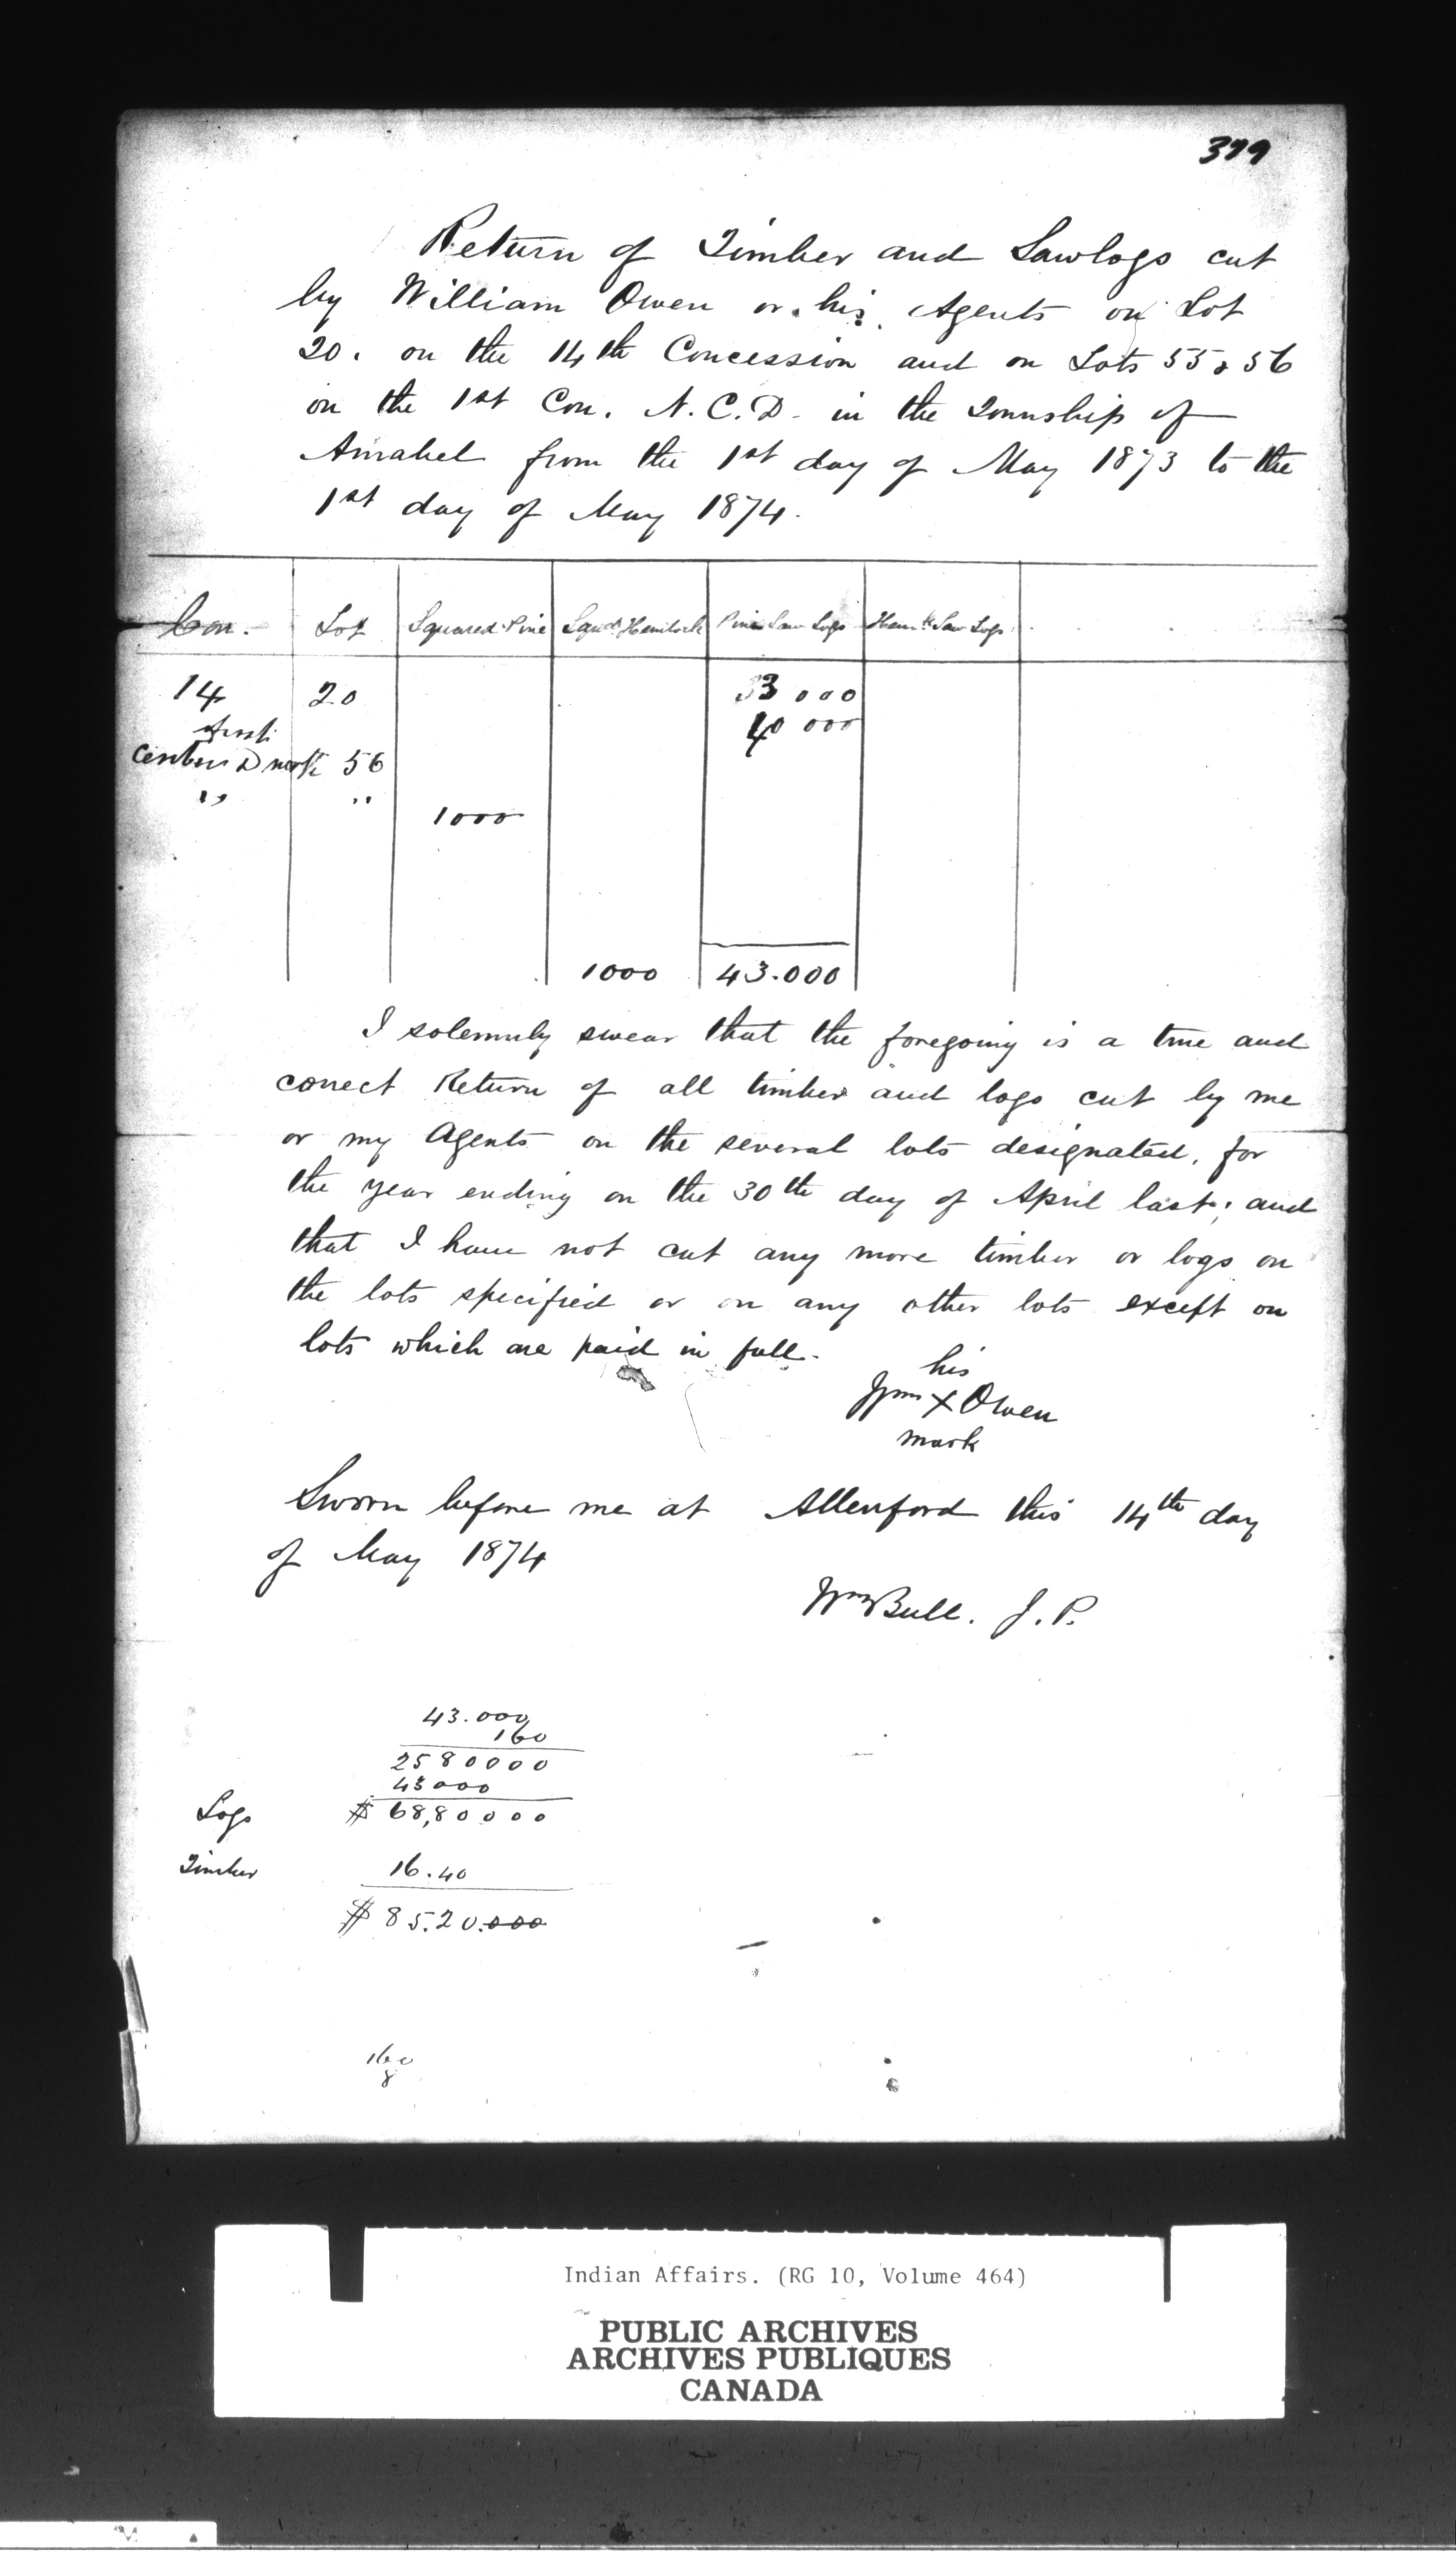 379
Return of Timber and Sawlogs cut
by William Owen or his Agents on Lot
20. on the 14th Concession and on Lots 55 & 56
on the 1st Con. N.C.D. in the Township of
Amabel from the 1st day of May 1873 to the
1st day of May 1874.
Con. Lot Squared Pine Squd Hemlock Pine Saw Logs Hemk Saw Logs
14 20 3 000
first 40 000
Center D north 56
" " 1000
1000 43.000
I solemnly swear that the foregoing is a true and
correct Return of all timber and logs cut by me
or my Agents on the several lots designated, for
the year ending on the 30th day of April last; and
that I have not cut any more timber or logs on
the lots specified or on any other lots except on
lots which are paid in full.
his
Wm X Owen
mark
Sworn before me at Allenford this 14th day
of May 1874
Wm Bull. J. P.
43.000
160
2580000
43000
Logs $ 68,80000
Timber 16.40
$ 85.20.000
160
8
Indian Affairs. (RG 10, Volume 464)
PUBLIC ARCHIVES
ARCHIVES PUBLIQUES
CANADA